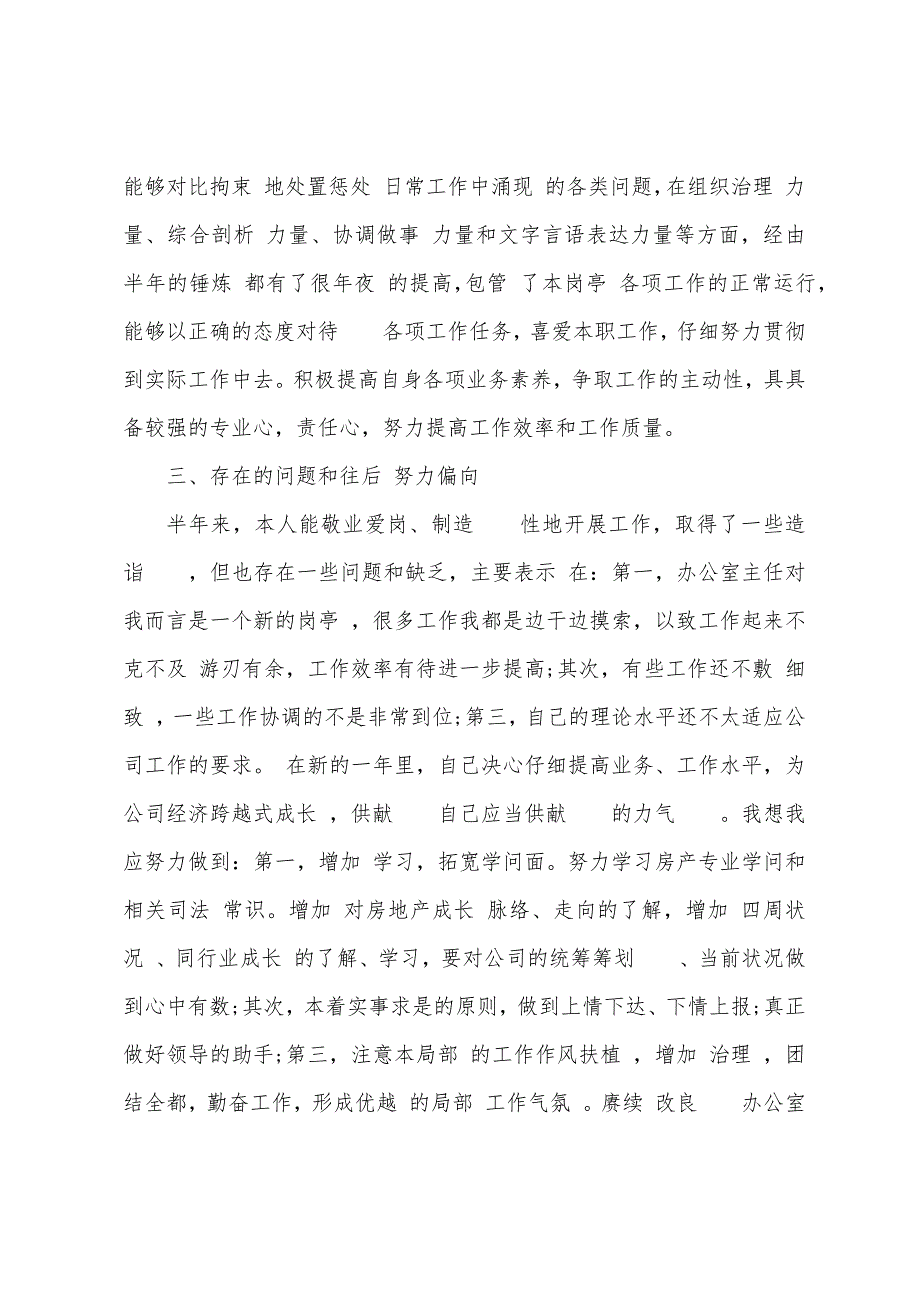 能够对比拘束 地处置惩处 日常工作中涌现 的各类问题，在组织治理 力
量、综合剖析 力量、协调做事 力量和文字言语表达力量等方面，经由
半年的锤炼 都有了很年夜 的提高，包管 了本岗亭 各项工作的正常运行，
能够以正确的态度对待 各项工作任务，喜爱本职工作，仔细努力贯彻
到实际工作中去。积极提高自身各项业务素养，争取工作的主动性，具具
备较强的专业心，责任心，努力提高工作效率和工作质量。
三、存在的问题和往后 努力偏向
半年来，本人能敬业爱岗、制造 性地开展工作，取得了一些造
诣 ，但也存在一些问题和缺乏，主要表示 在：第一，办公室主任对
我而言是一个新的岗亭 ，很多工作我都是边干边摸索，以致工作起来不
克不及 游刃有余，工作效率有待进一步提高;其次，有些工作还不敷 细
致 ，一些工作协调的不是非常到位;第三，自己的理论水平还不太适应公
司工作的要求。 在新的一年里，自己决心仔细提高业务、工作水平，为
公司经济跨越式成长 ，供献 自己应当供献 的力气 。我想我
应努力做到：第一，增加 学习，拓宽学问面。努力学习房产专业学问和
相关司法 常识。增加 对房地产成长 脉络、走向的了解，增加 四周状
况 、同行业成长 的了解、学习，要对公司的统筹筹划 、当前状况做
到心中有数;其次，本着实事求是的原则，做到上情下达、下情上报;真正
做好领导的助手;第三，注意本局部 的工作作风扶植 ，增加 治理 ，团
结全都，勤奋工作，形成优越 的局部 工作气氛 。赓续 改良 办公室